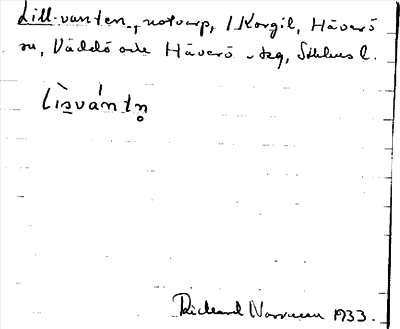 Lill-vanten, notvarp, i Korgil, Häverö
sn, Väddö och Häverö skg, Sthlms l.
Lìsvántn̥
Rickard Norrman 1933.